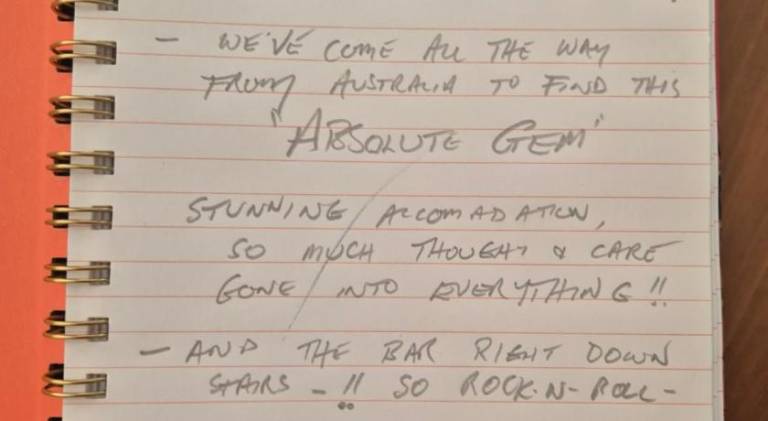 - WE'VE COME ALL THE WAY
FROM AUSTRALIA TO FIND THIS
"ABSOLUTE GEM"
STUNNING ACCOMADATION,
SO MUCH THOUGHT & CARE
GONE INTO EVERYTHING!!
- AND THE BAR RIGHT DOWN
STAIRS -!! SO ROCK-N-ROLL-